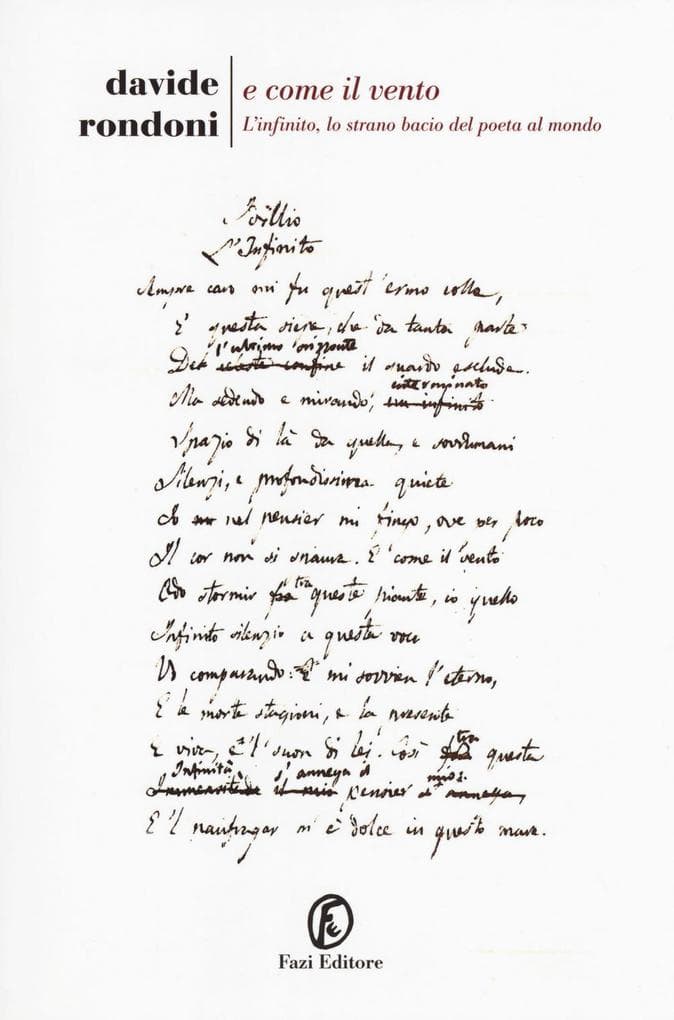 davide
rondoni
e come il vento
L'infinito, lo strano bacio del poeta al mondo
Idillio
L'Infinito
Sempre caro mi fu quest'ermo colle,
E questa siepe, che da tanta parte
l'ultimo orizzonte
Del celeste confine il guardo esclude.
interminato
Ma sedendo e mirando, un infinito
Spazio di là da quella, e sovrumani
Silenzi, e profondissima quiete
Io nel pensier mi fingo, ove per poco
Il cor non si spaura. E come il vento
tra
Odo stormir fra queste piante, io quello
Infinito silenzio a questa voce
Vo comparando: E mi sovvien l'eterno,
E le morte stagioni, e la presente
tra
E viva, e 'l suon di lei. Così fra questa
Infinità s'annega il mio:
Immensitade il mio pensier s'annega,
E 'l naufragar m'è dolce in questo mare.
Fe
Fazi Editore